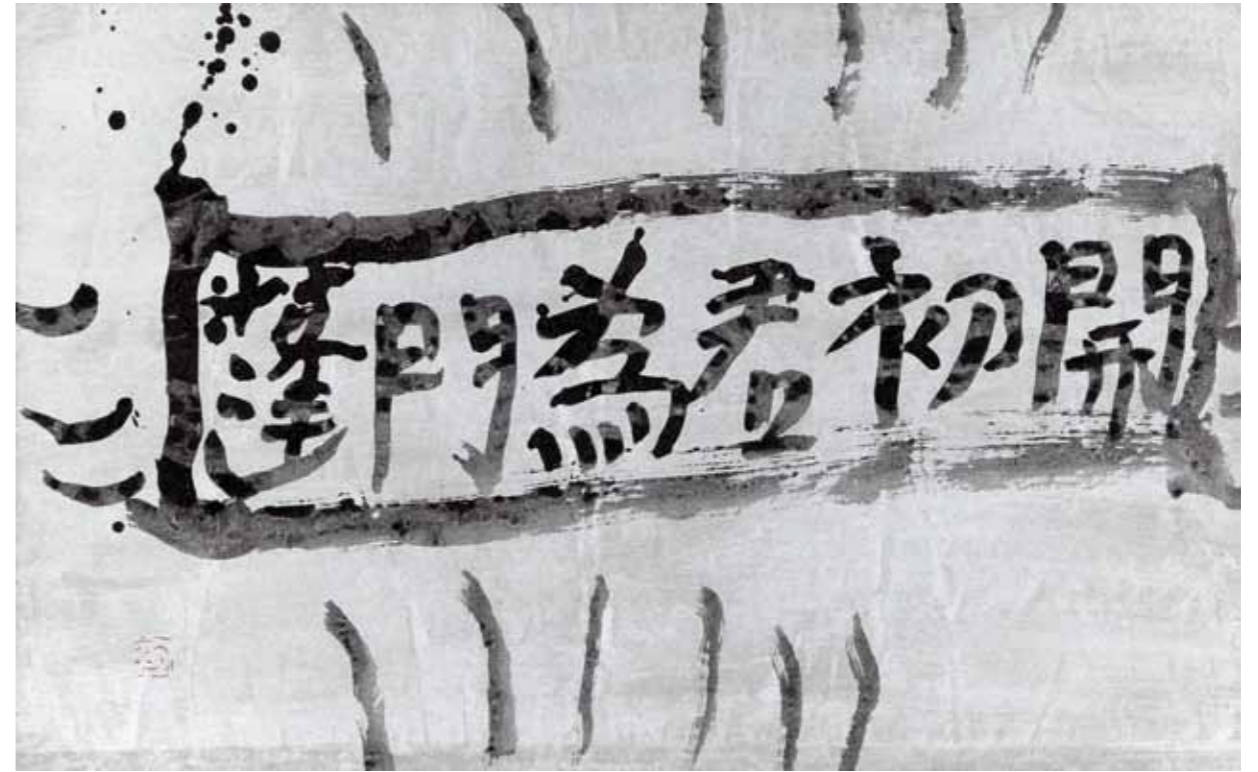 蓬門為君初開